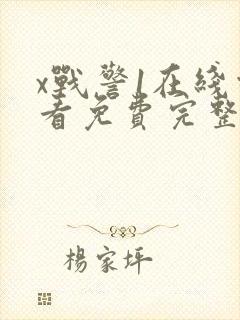 x戰警1在綫
看免費完整
楊家坪